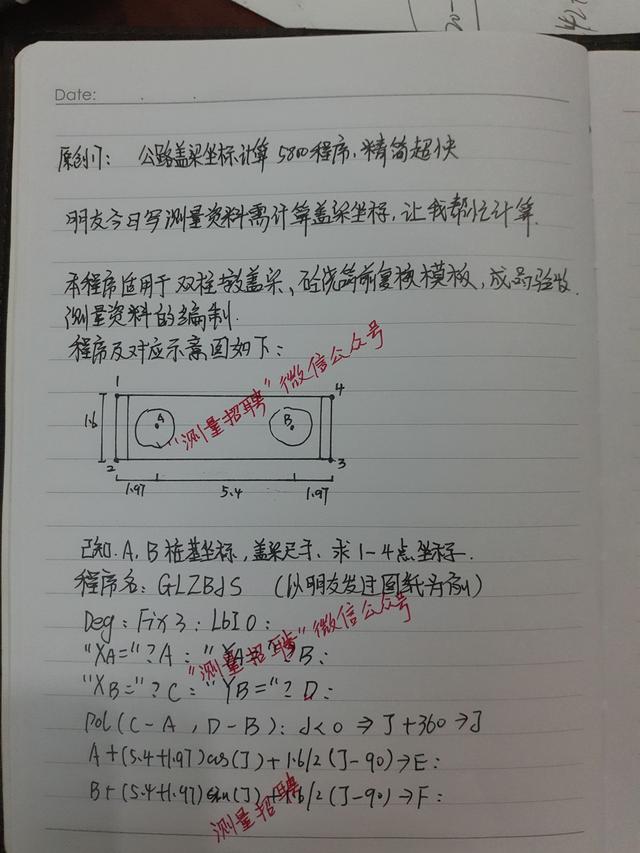 20-
442.
Date: . .
原创1: 公路盖梁坐标计算5800程序,精简超快
朋友今日写测量资料需计算盖梁坐标,让我帮忙计算.
本程序适用于双柱墩盖梁、砼浇筑前复核模板,成品验收
测量资料的编制.
程序及对应示意图如下:
"测量招聘"微信公众号
1
4
A
B
1.6
2
3
1.97
5.4
1.97
已知.A、B桩基坐标,盖梁尺寸、求1-4点坐标.
程序名: GLZBJS (以朋友发过图纸为例)
Deg: Fix 3: LbI 0:
"XA="? A: "YA="? B:
"测量招聘"微信公众号
"XB="? C: "YB="? D:
pol(C-A,D-B): J<0⇒J+360→J
A+(5.4+1.97)cos(J)+1.6/2(J-90)→E:
B+(5.4+1.97)sin(J)+1.6/2(J-90)→F:
测量招聘